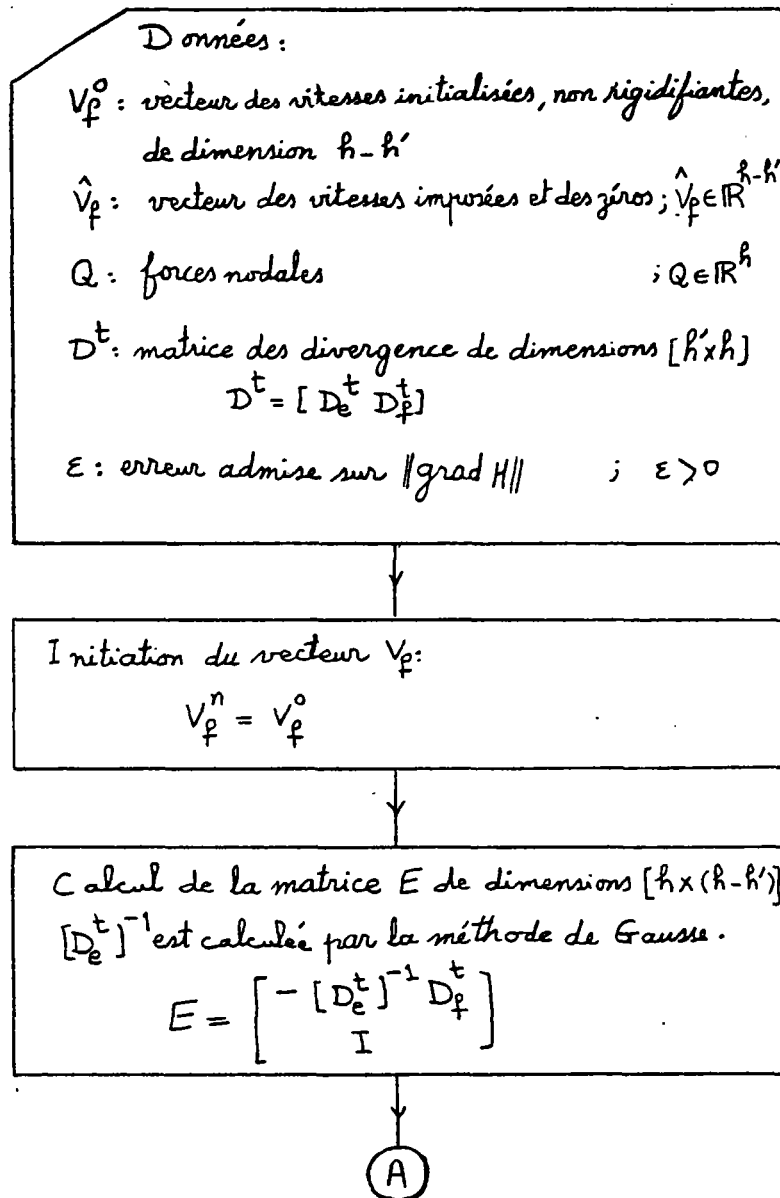 Données :
V_f^o : vècteur des vitesses initialisées, non rigidifiantes,
de dimension h-h'
V̂_f : vecteur des vitesses imposées et des zéros ; V̂_f ∈ ℝ^{h-h'}
Q : forces nodales ; Q ∈ ℝ^h
D^t : matrice des divergence de dimensions [h'xh]
D^t = [ D_e^t D_f^t ]
ε : erreur admise sur ‖grad H‖ ; ε > 0
Initiation du vecteur V_f :
V_f^n = V_f^o
Calcul de la matrice E de dimensions [h x (h-h')]
[D_e^t]^{-1} est calculée par la méthode de Gausse.
E = [ - [D_e^t]^{-1} D_f^t
I ]
A